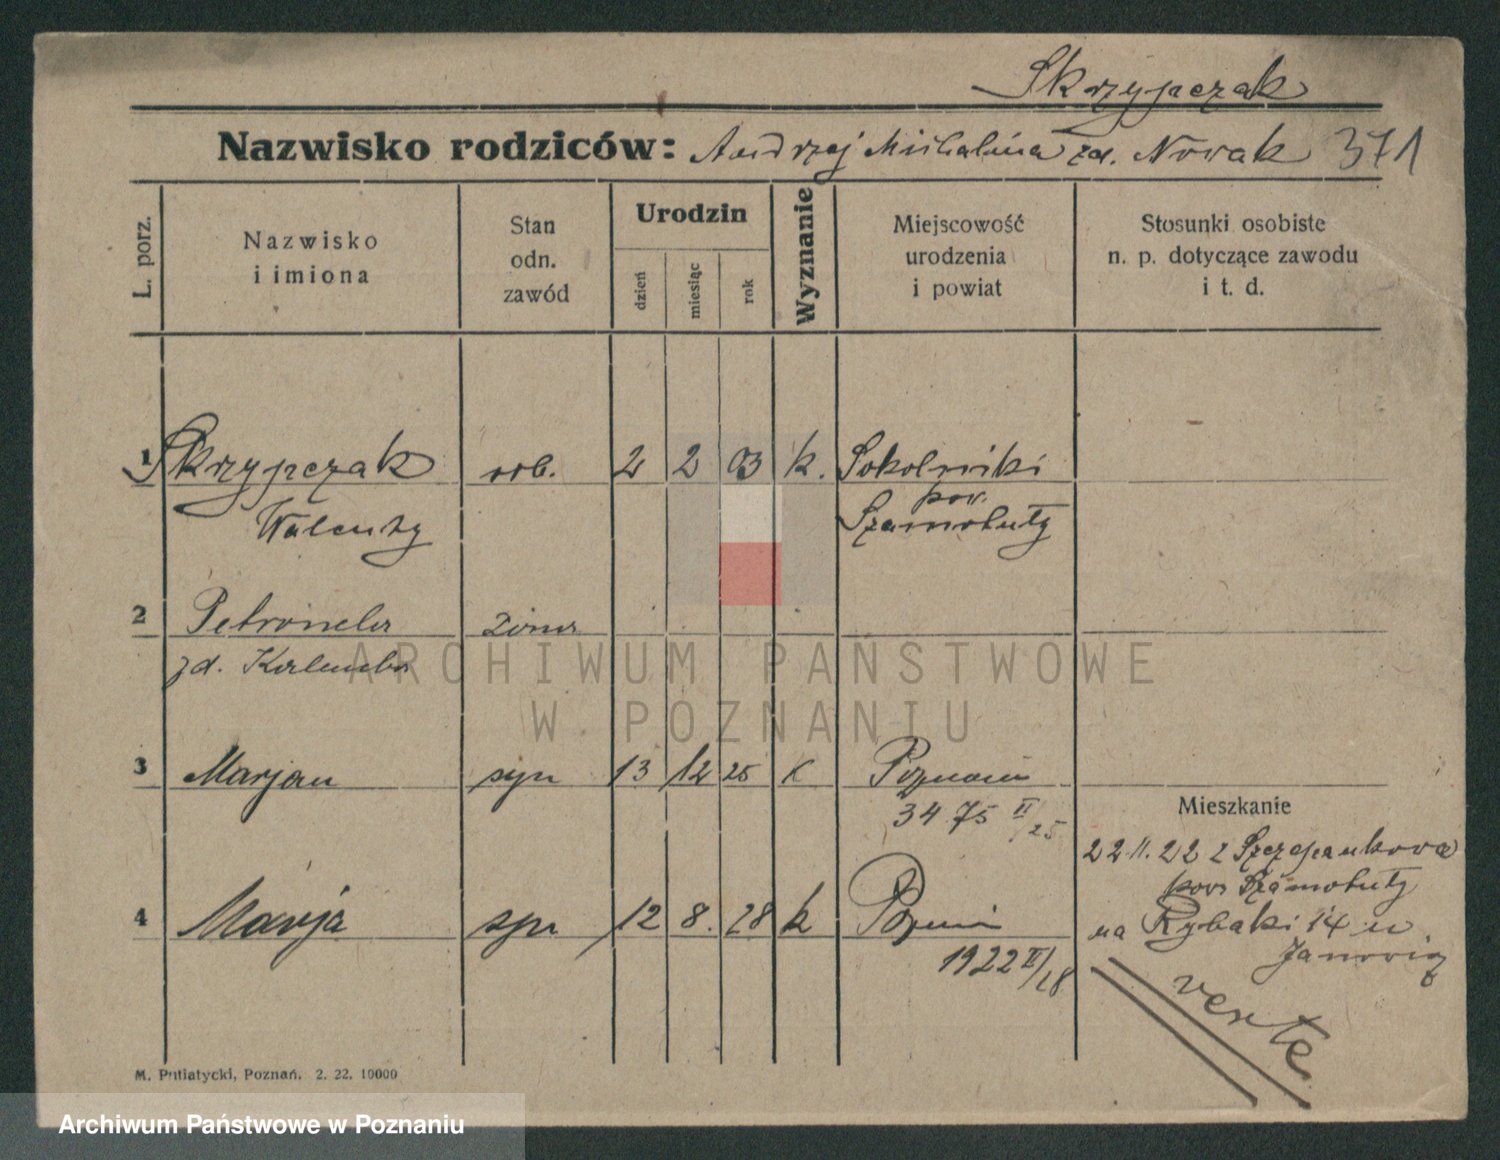 Skrzypczak
Nazwisko rodziców: Andrzej Michalina zd. Nowak 371
L. porz.
Nazwisko
i imiona
Stan
odn.
zawód
Urodzin
dzień
miesiąc
rok
Wyznanie
Miejscowość
urodzenia
i powiat
Stosunki osobiste
n. p. dotyczące zawodu
i t. d.
1 Skrzypczak rob. 2 2 03 k. Sokolniki
Walenty pow. Szamotuły
2 Petronela żona
zd.
3 Marjan syn 13 12 25 k Poznań
3475 II/25
Mieszkanie
22 11. 22 z Szczepankowa
pow Szamotuły
4 Marja syn 12 8. 28 k Poznań
na Rybaki 14 u
1922 II/28
verte
M. Putiatycki, Poznań. 2. 22. 10000
ARCHIWUM PAŃSTWOWE
W POZNANIU
Archiwum Państwowe w Poznaniu